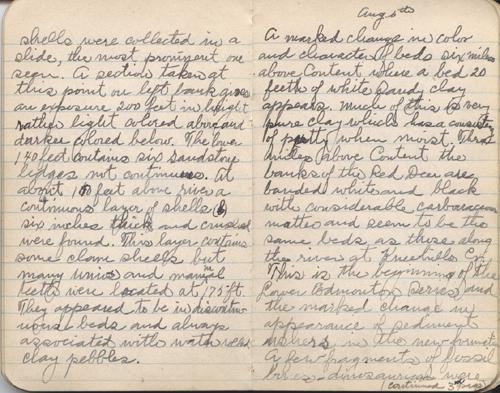 shells were collected in a
slide, the most prominent one
seen. A section taken at
this point on left bank gives
an exposure 200 feet in height
rather light colored above and
darker colored below. The lower
140 feet contains six sandstone
ledges not continuous. At
about feet above river a
continuous layer of shells
six inches thick and crushed
were found. This layer contains
some clam shells but
many unios and
teeth were located at 175 ft.
They appeared to be in
beds and always
associated with
clay pebbles.
Aug 6th
A marked change in color
and character of beds six miles
above Content where a bed 20
feeth of white sandy clay
appears. Much of this is very
pure clay which has a consisty
of putty when moist. Three
miles above Content the
banks of the Red Deer are
banded white and black
with considerable
matter and seem to be the
same beds as those along
the river at Cr.
This is the beginning of the
Lower Edmonton Series and
the marked change in
appearance of sediment
ushers in the new
A few fragments of fossil
bones - dinosaurian were
(continued 3rd page)